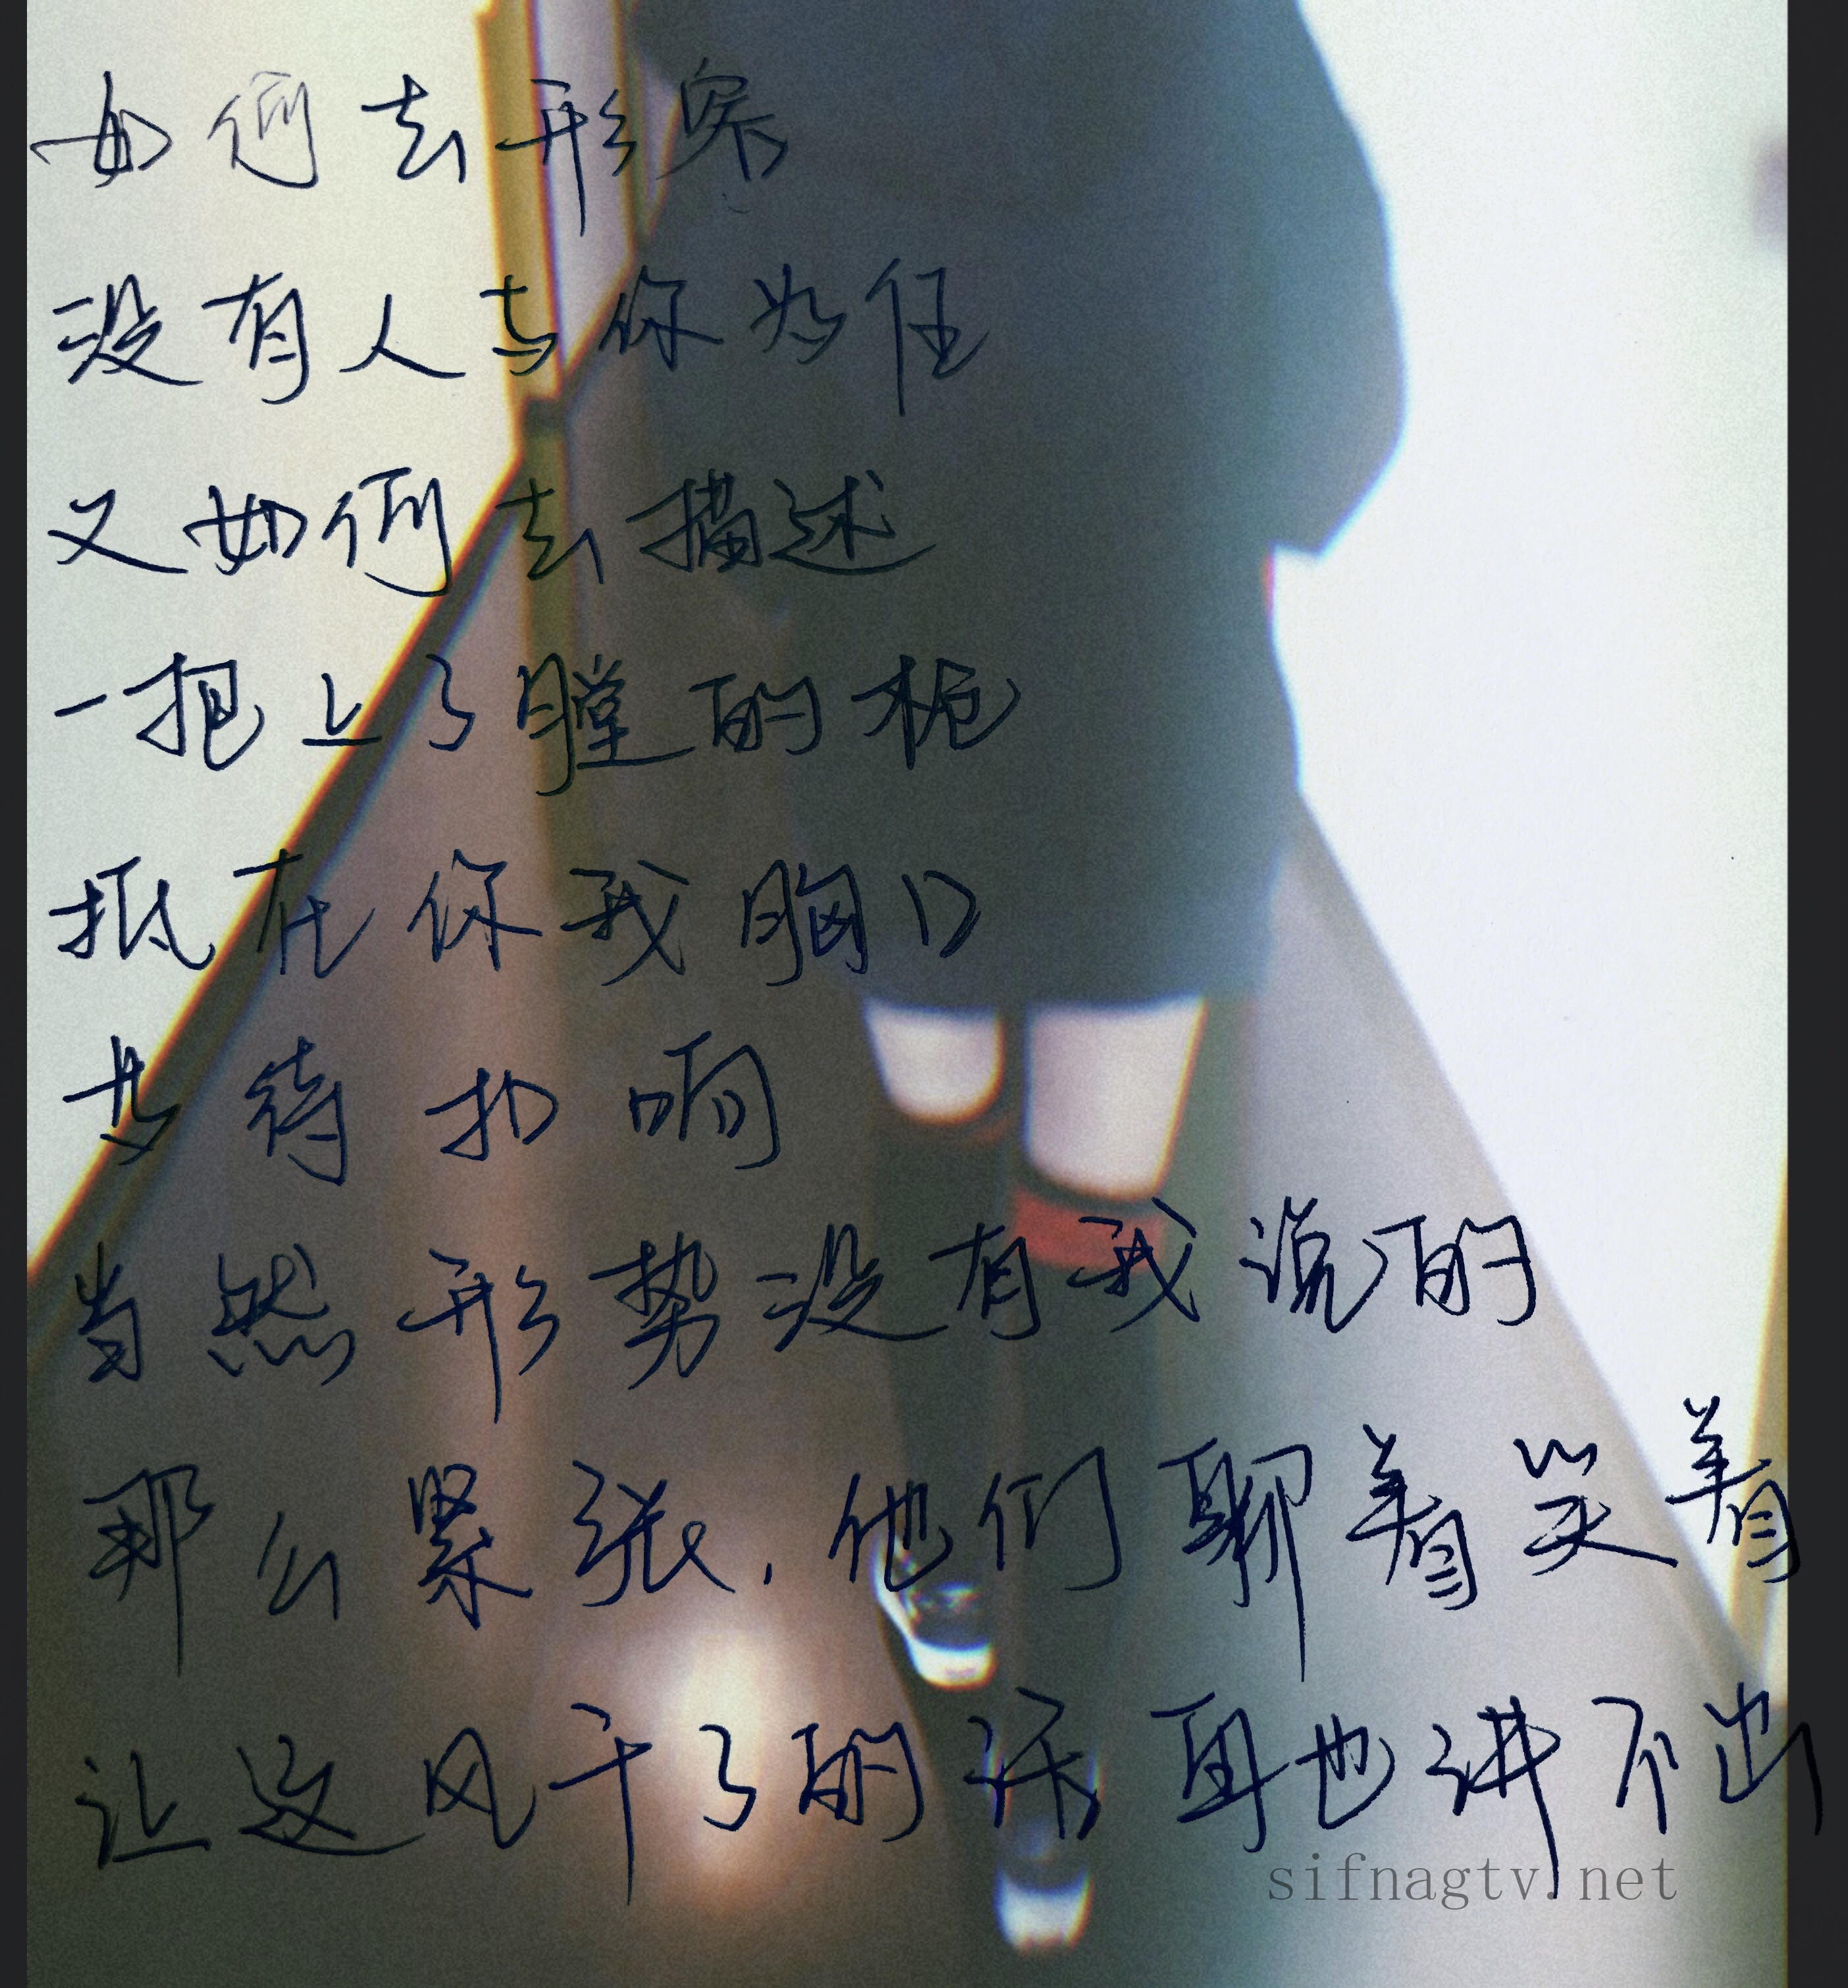 如何去形容
没有人与你为伍
又如何去描述
一把上了膛的枪
抵在你我胸口
去待扣响
当然形势没有我说的
那么紧张,他们聊着笑着
让这风干了的话再也讲不出
sifnagtv.net